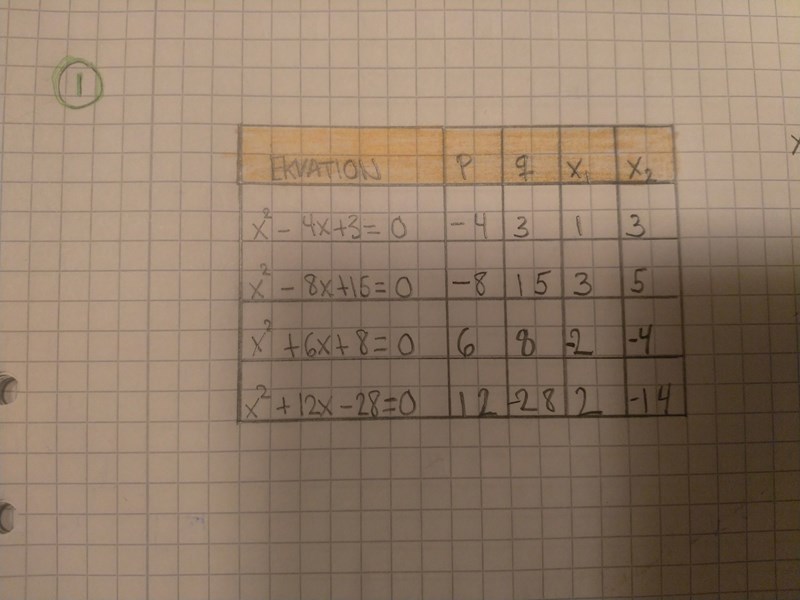 1
EKVATION p q x₁ x₂
x² - 4x+3= 0 -4 3 1 3
x² - 8x+15= 0 -8 15 3 5
x² +6x+8=0 6 8 -2 -4
x² +12x-28=0 12 -28 2 -14